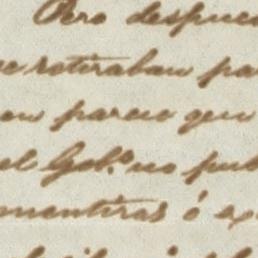 Pero despues
se retiraban pa
en parece que
el Gob.º no pub
mentiras ó ex